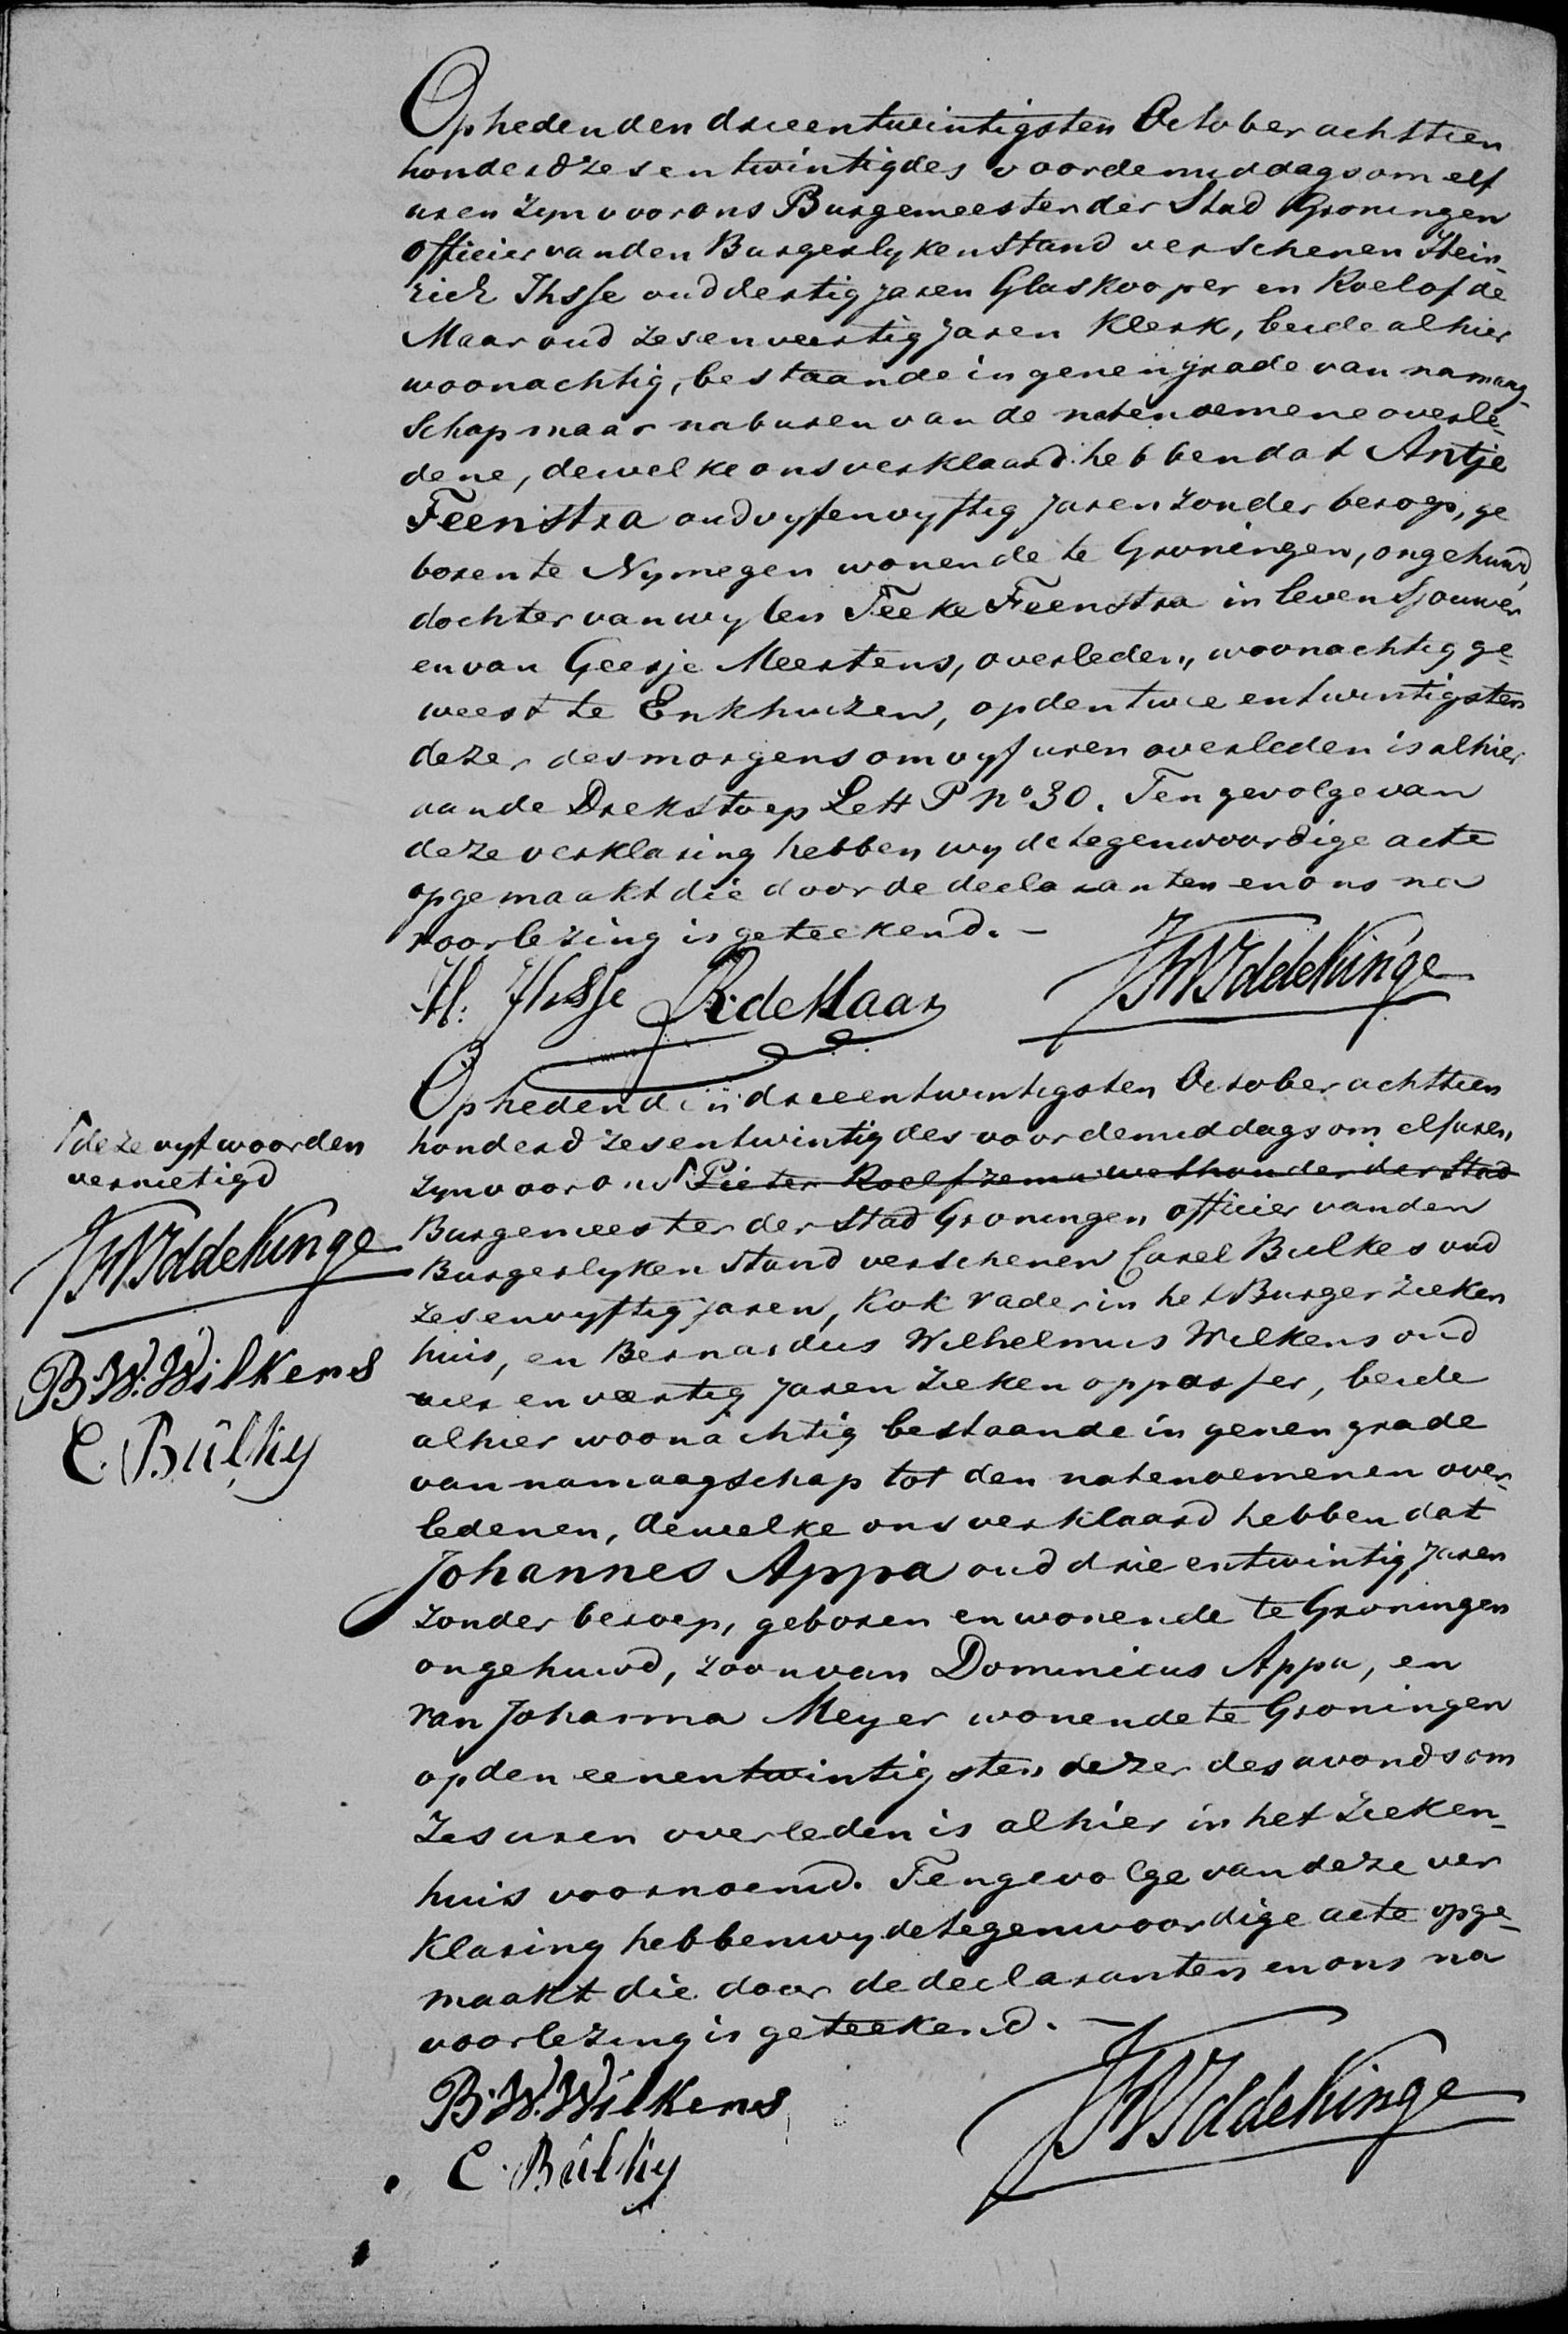 Op heden den drieentwintigsten October achttien
honderd zes en twintig des voordemiddags om elf
uren zyn voor ons Burgemeester der Stad Groningen
officier van den Burgerlyken Stand verschenen Hein-
rich Ihsse oud dertig jaren Glaskooper en Roelof de
Maar oud zesenveertig jaren Klerk, beide alhier
woonachtig, bestaande in genen grade van namaag-
schap maar naburen van de natenoemene overle-
dene, dewelke ons verklaard hebben dat Antje
Feenstra oud vyfenvyftig jaren zonder beroep, ge
boren te Nymegen wonende te Groningen, ongehuwd,
dochter van wylen Feeke Feenstra in leven Sjouwer
en van Geesje Meertens, overleden, woonachtig ge-
weest te Enkhuizen, op den twee entwintigsten
dezer des morgens om vyf uren overleden is alhier
aan de Drekstoep Lett P No 30. Ten gevolge van
deze verklaring hebben wy de tegenwoordige acte
opgemaakt die door de declaranten en ons na
voorlezing is geteekend. -
H. Ihsse R. de Maar JWIddekinge
Op heden den drieentwintigsten October achttien
honderd zesentwintig des voordemiddags om elf uren
zyn voor ons Pieter Roelfzema wethouder der Stad
Burgemeester der Stad Groningen officier van den
Burgerlyken Stand verschenen Carel Bulkes oud
zesenvyftig jaren, Kok Vader in het Burger zieken
huis, en Bernardus Wilhelmus Wilkens oud
vier en veertig jaren ziekenoppasser, beide
alhier woonachtig bestaande in genen grade
van namaagschap tot den natenoemenen over-
ledenen, dewelke ons verklaard hebben dat
Johannes Appa oud drie entwintig jaren
zonder beroep, geboren en wonende te Groningen
ongehuwd, zoon van Dominicus Appa, en
van Johanna Meyer wonende te Groningen
op den eenentwintigsten dezer des avonds om
zes uren overleden is alhier in het zieken-
huis voornoemd. Ten gevolge van deze ver
klaring hebben wy de tegenwoordige acte opge-
maakt die door de declaranten en ons na
voorlezing is geteekend. -
B. W. Wilkens
C. Bulky
JWIddekinge
deze vyf woorden
vernietigd
JWIddekinge
B. W. Wilkens
C. Bulky